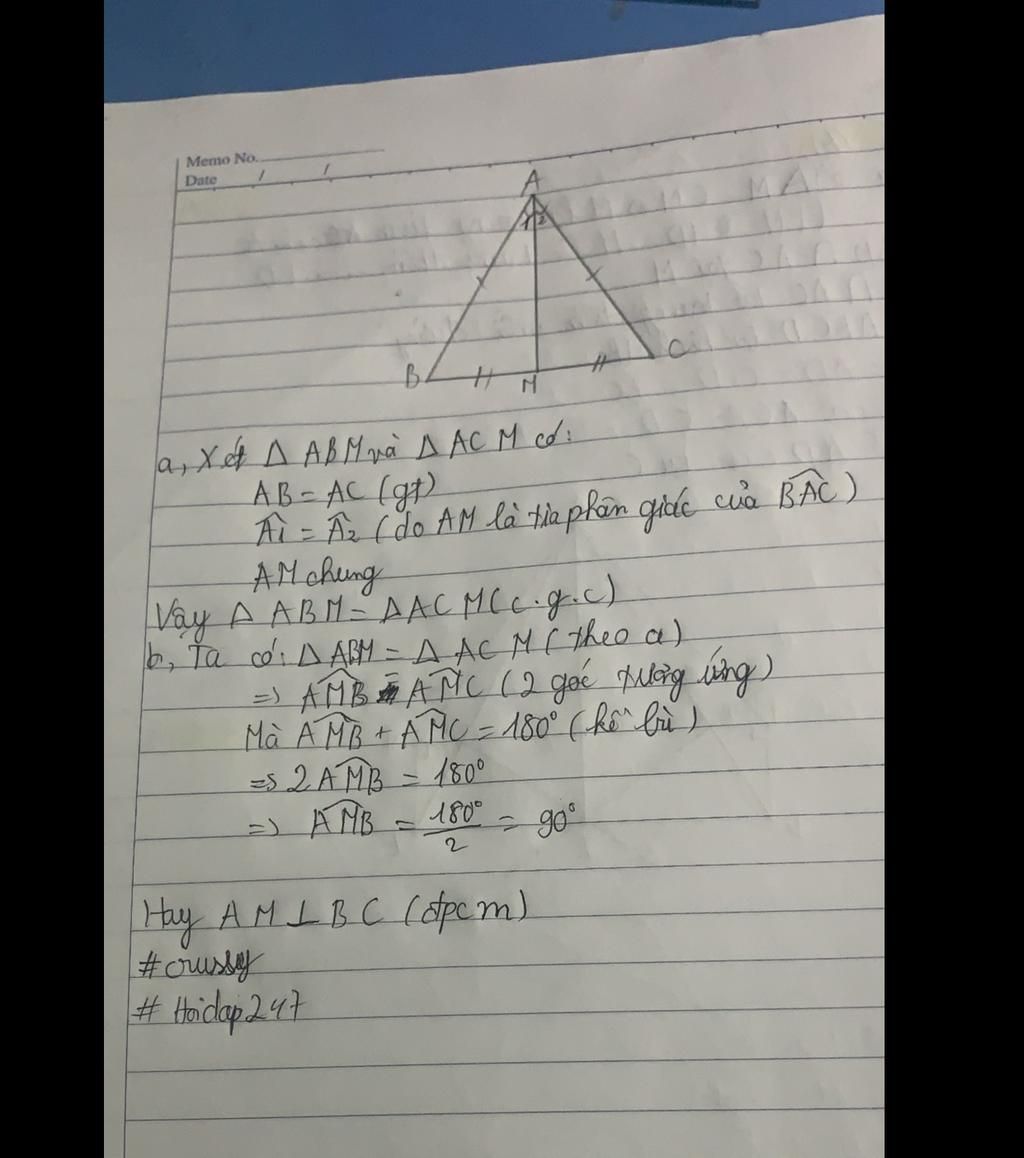 Memo No.
Date / /
A
1 2
B M C
a, Xét Δ ABM và Δ ACM có:
AB = AC (gt)
Â1 = Â2 (do AM là tia phân giác của B̂AC)
AM chung
Vậy Δ ABM = Δ ACM (c.g.c)
b, Ta có: Δ ABM = Δ ACM (theo a)
=> ÂMB = ÂMC (2 góc tương ứng)
Mà ÂMB + ÂMC = 180° (kề bù)
=> 2ÂMB = 180°
=> ÂMB = 180°/2 = 90°
Hay AM ⊥ BC (đpcm)
# Hoidap247